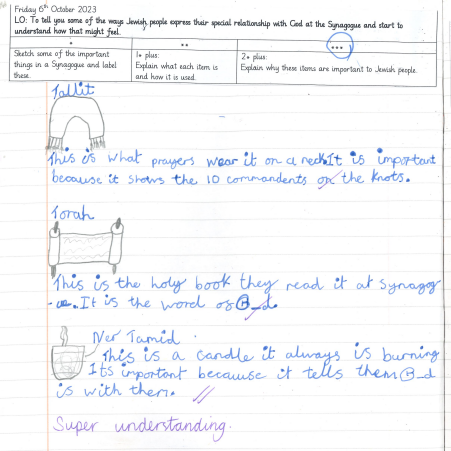 Friday 6th October 2023
LO: To tell you some of the ways Jewish people express their special relationship with God at the Synagogue and start to
understand how that might feel.
*
**
***
Sketch some of the important
things in a Synagogue and label
these.
1+ plus:
Explain what each item is
and how it is used.
2+ plus:
Explain why these items are important to Jewish people.
Tallit
This is what prayers wear it on a neck. It is important
because it shows the 10 commandents on the knots.
Torah
This is the holy book they read it at synagog
-ue. It is the word os G_d.
Ner Tamid
This is a candle it always is burning
Its important because it tells them G_d
is with them.
Super understanding.